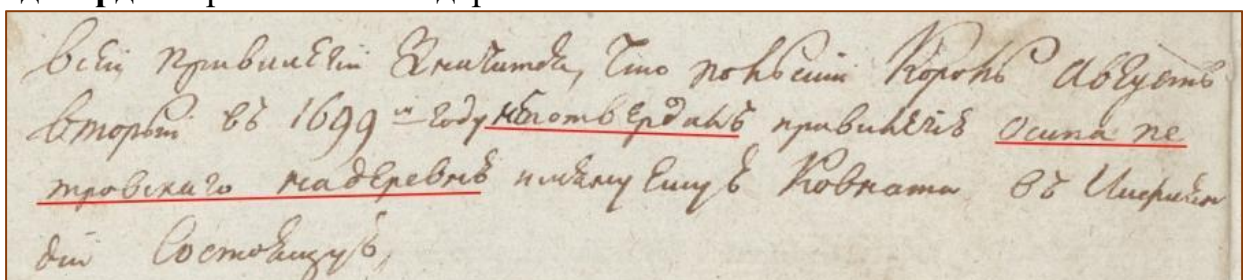 всей привилегiи Значитца, Что польскiй Король Августъ
вторый въ 1699м году потвердилъ привилегiю осипа пе
тровскаго надеревню имянуемую Ковната въ Инфлян
дiи Состоящую,